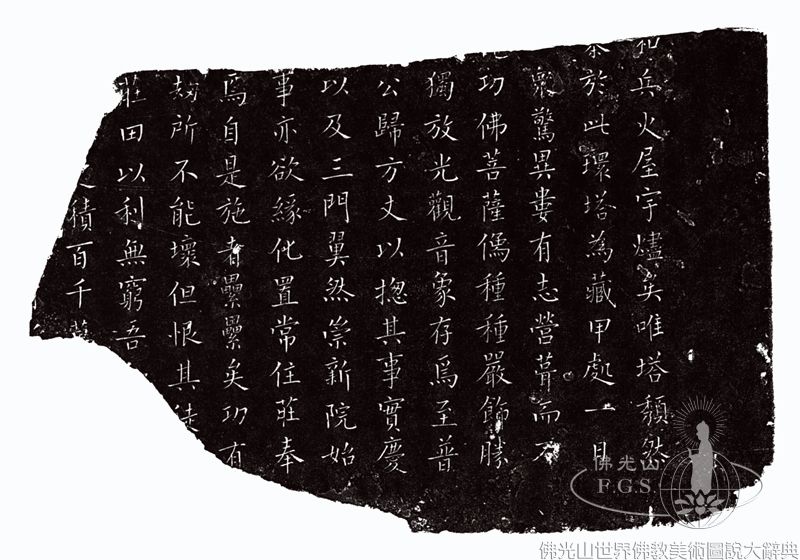 兵火屋宇燼矣唯塔頹然
於此環塔為藏甲處一日
衆驚異婁有志營葺而不
功佛菩薩種種嚴飾勝
獨放光觀音象存焉至普
公歸方丈以揔其事實慶
以及三門翼然崇新院始
事亦欲緣化置常住莊奉
焉自是施者纍纍矣功有
劫所不能壞但恨其徒
莊田以利無窮吾
積百千
佛光山
F.G.S.
佛光山世界佛教美術圖說大辭典